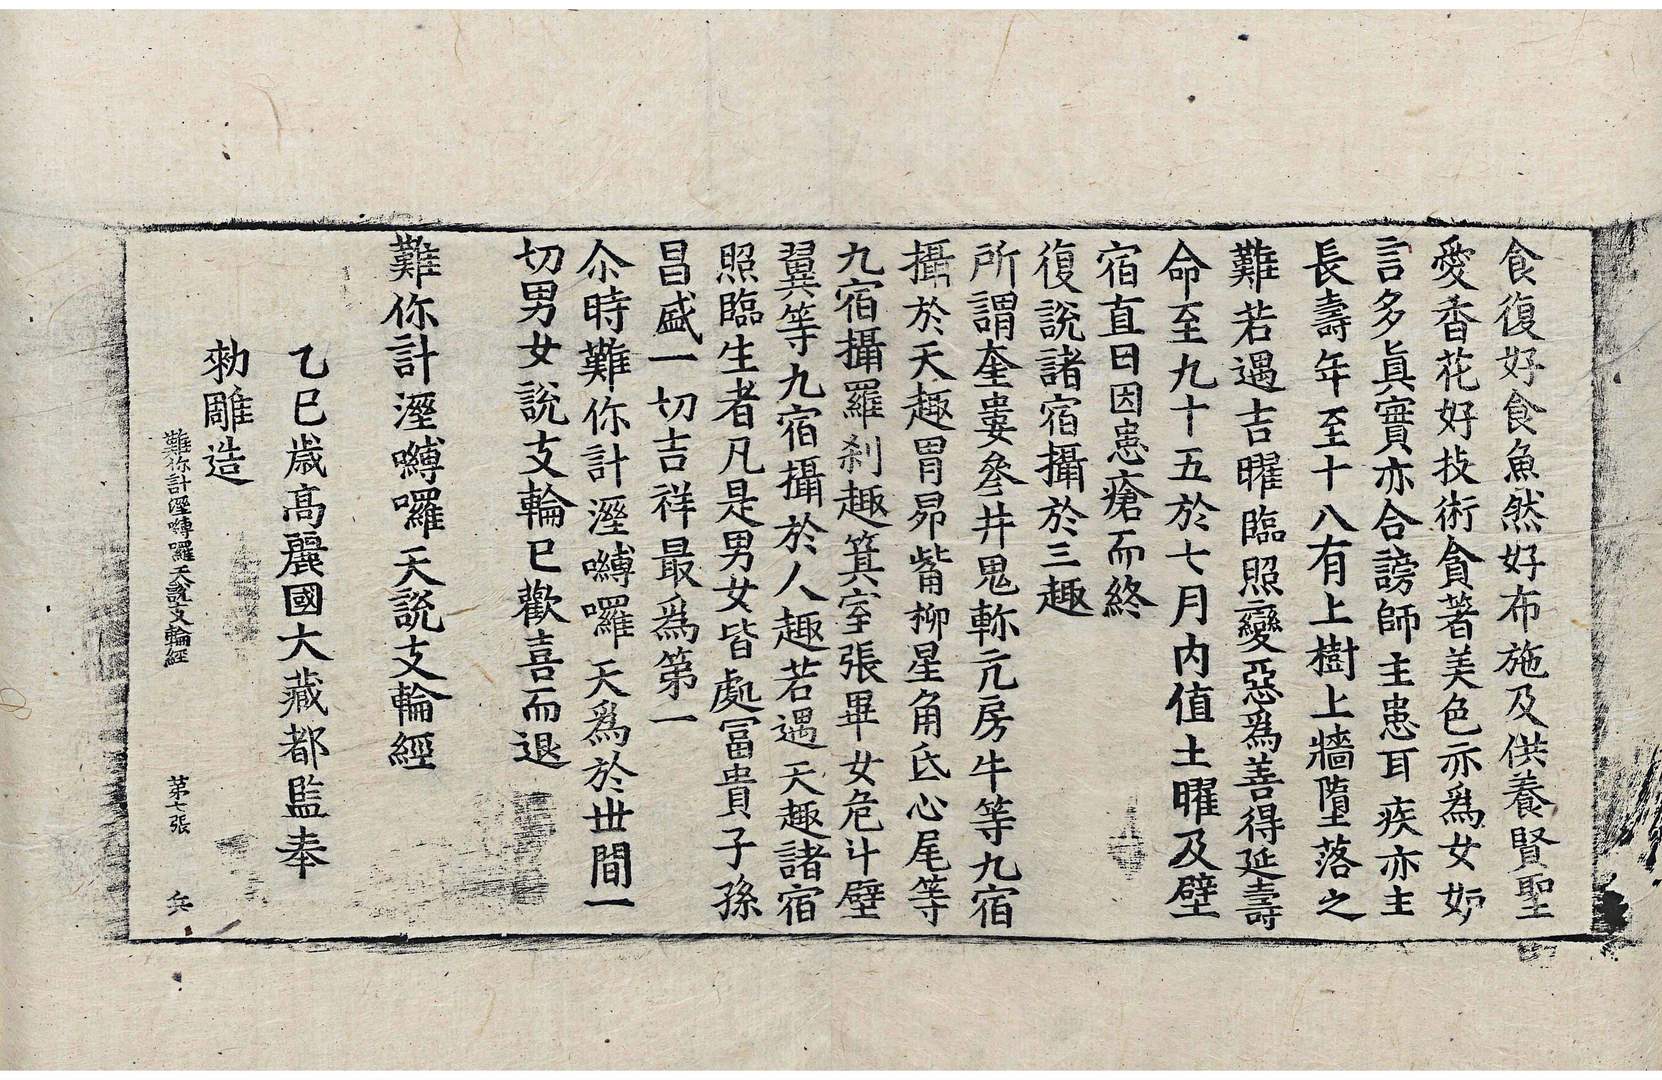 食復好食魚然好布施及供養賢聖
愛香花好技術貪著美色亦爲女妒
言多眞實亦合謗師主患耳疾亦主
長壽年至十八有上樹上牆墮落之
難若遇吉曜臨照變惡爲善得延壽
命至九十五於七月內值土曜及壁
宿直日因患瘡而終
復說諸宿攝於三趣
所謂奎婁參井鬼軫亢房牛等九宿
攝於天趣胃昴觜柳星角氐心尾等
九宿攝羅刹趣箕室張畢女危斗壁
翼等九宿攝於人趣若遇天趣諸宿
照臨生者凡是男女皆處冨貴子孫
昌盛一切吉祥最爲第一
尒時難你計溼嚩囉天爲於丗間一
切男女說支輪已歡喜而退
難你計溼嚩囉天說支輪經
乙巳歲高麗國大藏都監奉
勅雕造
難你計溼嚩囉天說支輪經 第七張 兵